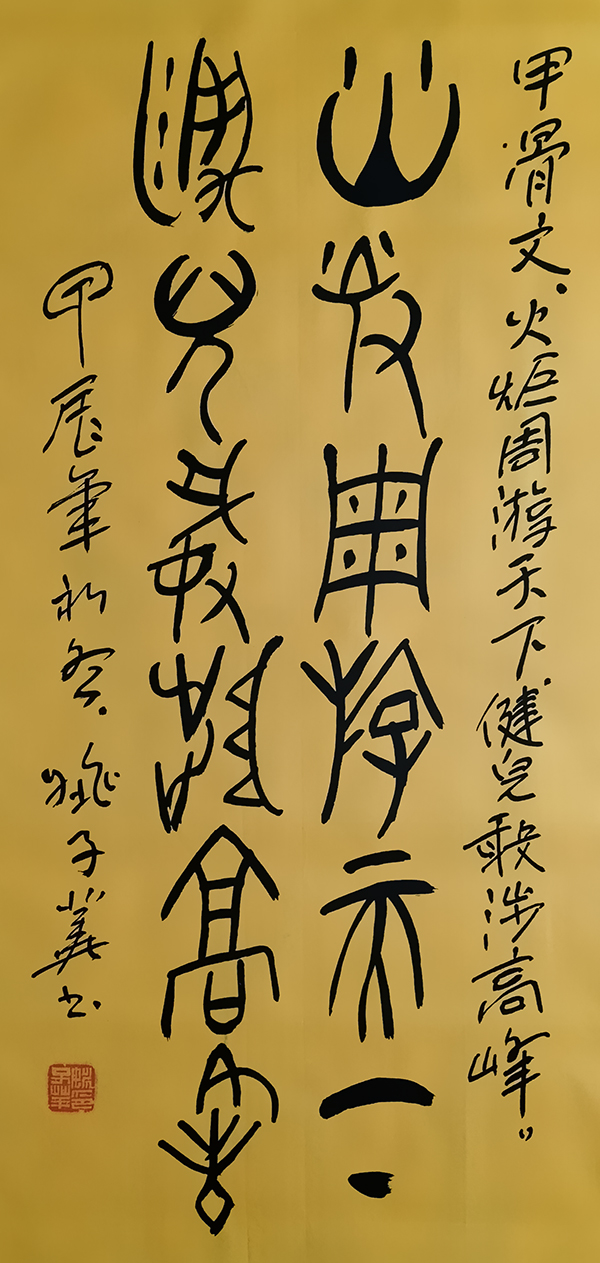 甲骨文、火炬周游天下、健兒敢涉高峰。
火炬周游天下
健兒敢涉高峰
甲辰年初冬、姚子華书